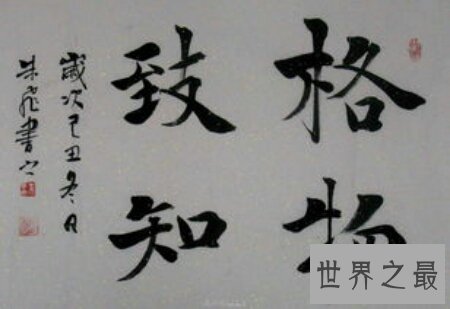 格物
致知
歲次己丑冬月
朱飛書
世界之最